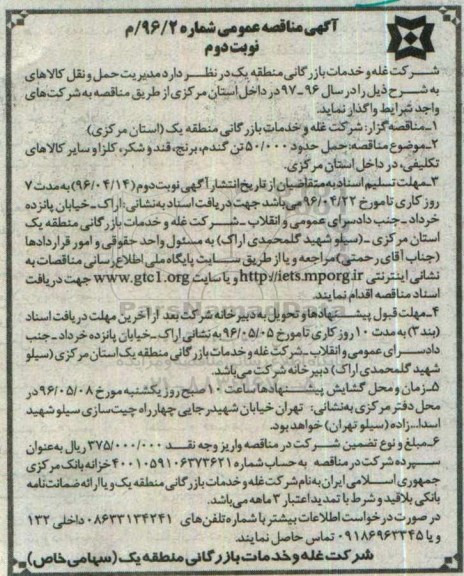 آگهی مناقصه عمومی شماره ۹۶/۲/م
نوبت دوم
شرکت غله و خدمات بازرگانی منطقه یک در نظر دارد مدیریت حمل و نقل کالاهای
به شرح ذیل را در سال ۹۶-۹۷ در داخل استان مرکزی از طریق مناقصه به شرکت‌های
واجد شرایط واگذار نماید.
۱-مناقصه‌گزار: شرکت غله و خدمات بازرگانی منطقه یک (استان مرکزی)
۲-موضوع مناقصه: حمل حدود ۵۰/۰۰۰ تن گندم، برنج، قند و شکر، کلزا و سایر کالاهای
تکلیفی، در داخل استان مرکزی.
۳-مهلت تسلیم اسناد به متقاضیان از تاریخ انتشار آگهی نوبت دوم (۹۶/۰۴/۱۴) به مدت ۷
روز کاری تا مورخ ۹۶/۰۴/۲۲ می‌باشد جهت دریافت اسناد به نشانی: اراک-خیابان پانزده
خرداد-جنب دادسرای عمومی و انقلاب-شرکت غله و خدمات بازرگانی منطقه یک
استان مرکزی-(سیلو شهید گلمحمدی اراک) به مسئول واحد حقوقی و امور قراردادها
(جناب آقای رحمتی) مراجعه و یا از طریق سایت پایگاه ملی اطلاع‌رسانی مناقصات به
نشانی اینترنتی http://iets.mporg.ir و یا سایت www.gtc1.org جهت دریافت
اسناد مناقصه اقدام نمایند.
۴-مهلت قبول پیشنهادها و تحویل به دبیرخانه شرکت بعد از آخرین مهلت دریافت اسناد
(بند ۳) به مدت ۱۰ روز کاری تا مورخ ۹۶/۰۵/۰۵ به نشانی اراک-خیابان پانزده خرداد-جنب
دادسرای عمومی و انقلاب-شرکت غله و خدمات بازرگانی منطقه یک استان مرکزی (سیلو
شهید گلمحمدی اراک) دبیرخانه شرکت می‌باشد.
۵-زمان و محل گشایش پیشنهادها ساعت ۱۰ صبح روز یکشنبه مورخ ۹۶/۰۵/۰۸ در
محل دفتر مرکزی به نشانی: تهران خیابان شهیدرجایی چهارراه چیت‌سازی سیلو شهید
اسدا...زاده (سیلو تهران) خواهد بود.
۶-مبلغ و نوع تضمین شرکت در مناقصه واریز وجه نقد ۳۷۵/۰۰۰/۰۰۰ ریال به عنوان
سپرده شرکت در مناقصه به حساب شماره ۴۰۰۱۰۵۹۱۰۶۳۷۳۶۲۱ خزانه بانک مرکزی
جمهوری اسلامی ایران به نام شرکت غله و خدمات بازرگانی منطقه یک و یا ارائه ضمانت‌نامه
بانکی بلاقید و شرط با تمدید اعتبار ۳ ماهه می‌باشد.
در صورت درخواست اطلاعات بیشتر با شماره تلفن‌های ۰۸۶۳۳۱۳۴۲۴۱ داخلی ۱۳۲
و یا ۰۹۱۸۶۹۶۳۳۴۵ تماس حاصل نمایند.
شرکت غله و خدمات بازرگانی منطقه یک (سهامی خاص)